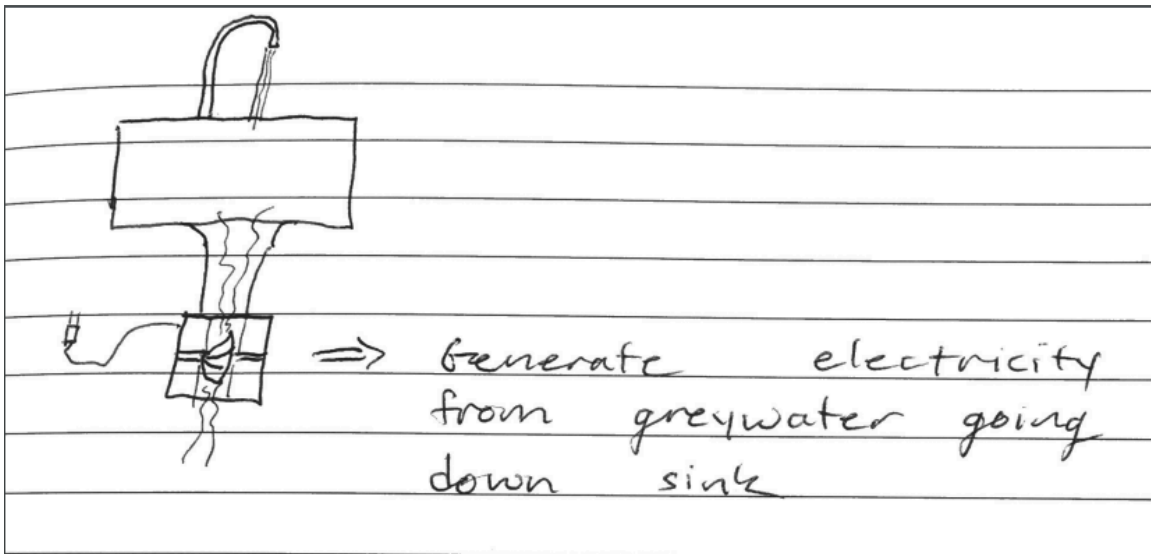 ⇒ Generate electricity
from greywater going
down sink